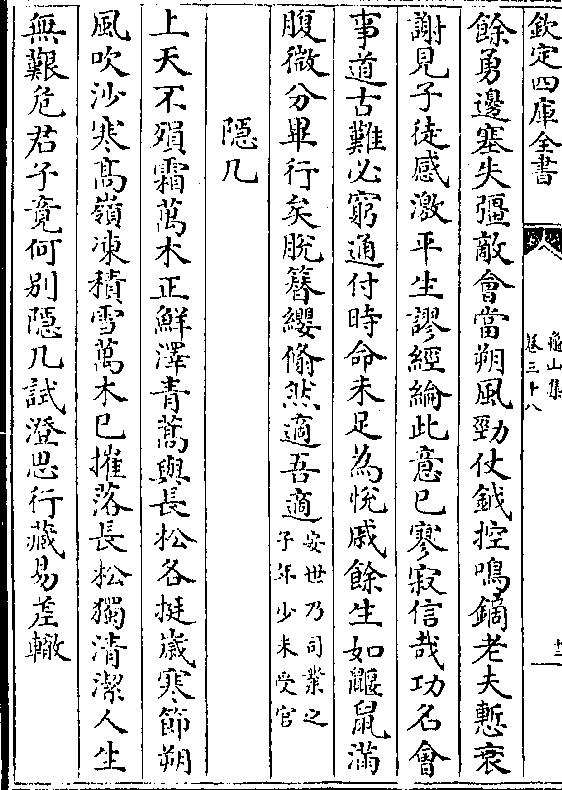 欽定四庫全書
龜山集
卷三十八
十二
餘勇邊塞失彊敵會當朔風勁仗鉞控鳴鏑老夫慙衰
謝見子徒感激平生謬經綸此意已寥寂信哉功名會
事道古難必窮通付時命未足為悅戚餘生如鼴鼠滿
腹微分畢行矣脫簪纓翛然適吾適安世乃司業之
子年少未受官
隱几
上天不殞霜萬木正鮮澤青蒿與長松各挺歲寒節朔
風吹沙寒高嶺凍積雪萬木已摧落長松獨清潔人生
無艱危君子竟何别隱几試澄思行藏易差轍